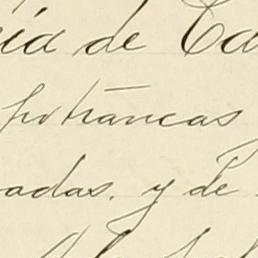 ria de Ca
potrancas
adas. y de